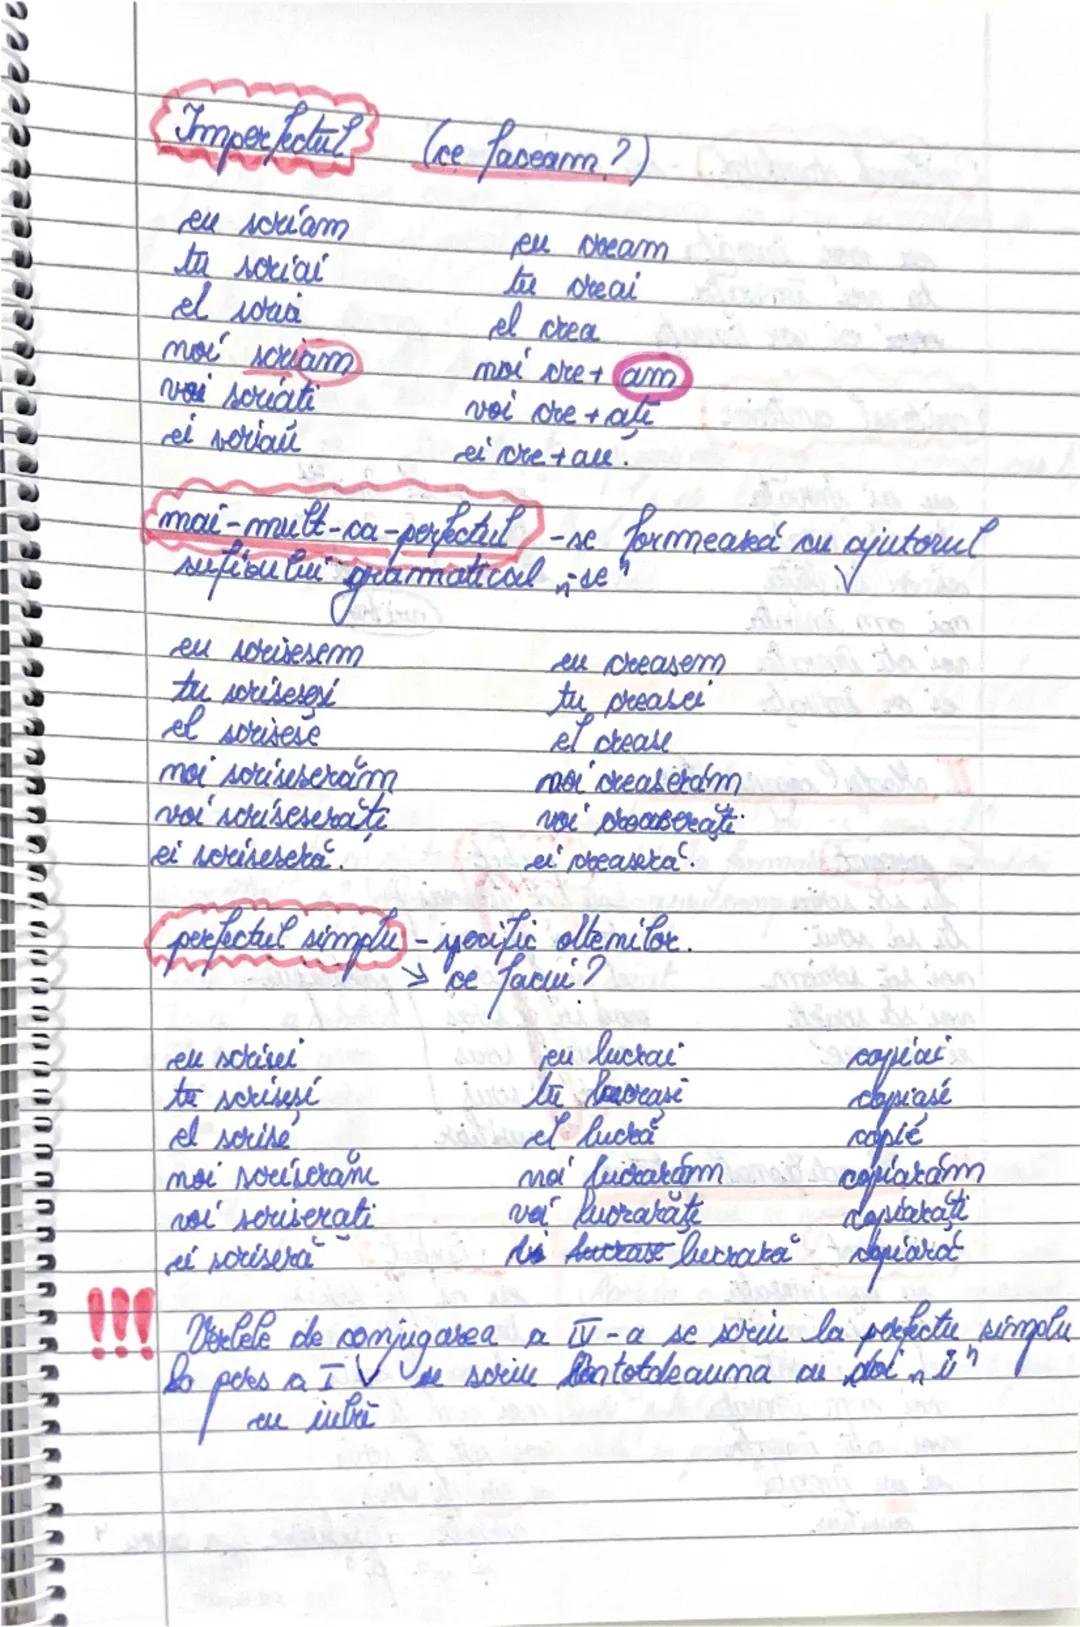 Imperfectul (ce faceam?)
eu scriam eu cream
tu scriai tu creai
el scria el crea
noi scriam noi cre + am
voi scriați voi cre + ați
ei scriau ei cre + au.
mai-mult-ca-perfectul - se formează cu ajutorul
sufixului gramatical „-se”
eu scrisesem eu creasem
tu scriseseși tu creasei
el scrisese el crease
noi scriseserăm noi creaserăm
voi scriseserăți voi creaserăți
ei scriseseră. ei creaseră.
perfectul simplu - specific oltenilor.
→ ce făcui?
eu scrisei eu lucrai copiai
tu scriseși tu lucrași copiași
el scrise el lucră copie
noi scriserăm noi lucrarăm copiarăm
voi scriserăți voi lucrarăți copiarăți
ei scriseră ei lucrară copiară
!!! Verbele de conjugarea a IV-a se scriu la perfectu simplu
la pers a I se scriu întotdeauna cu doi „i”
eu iubii